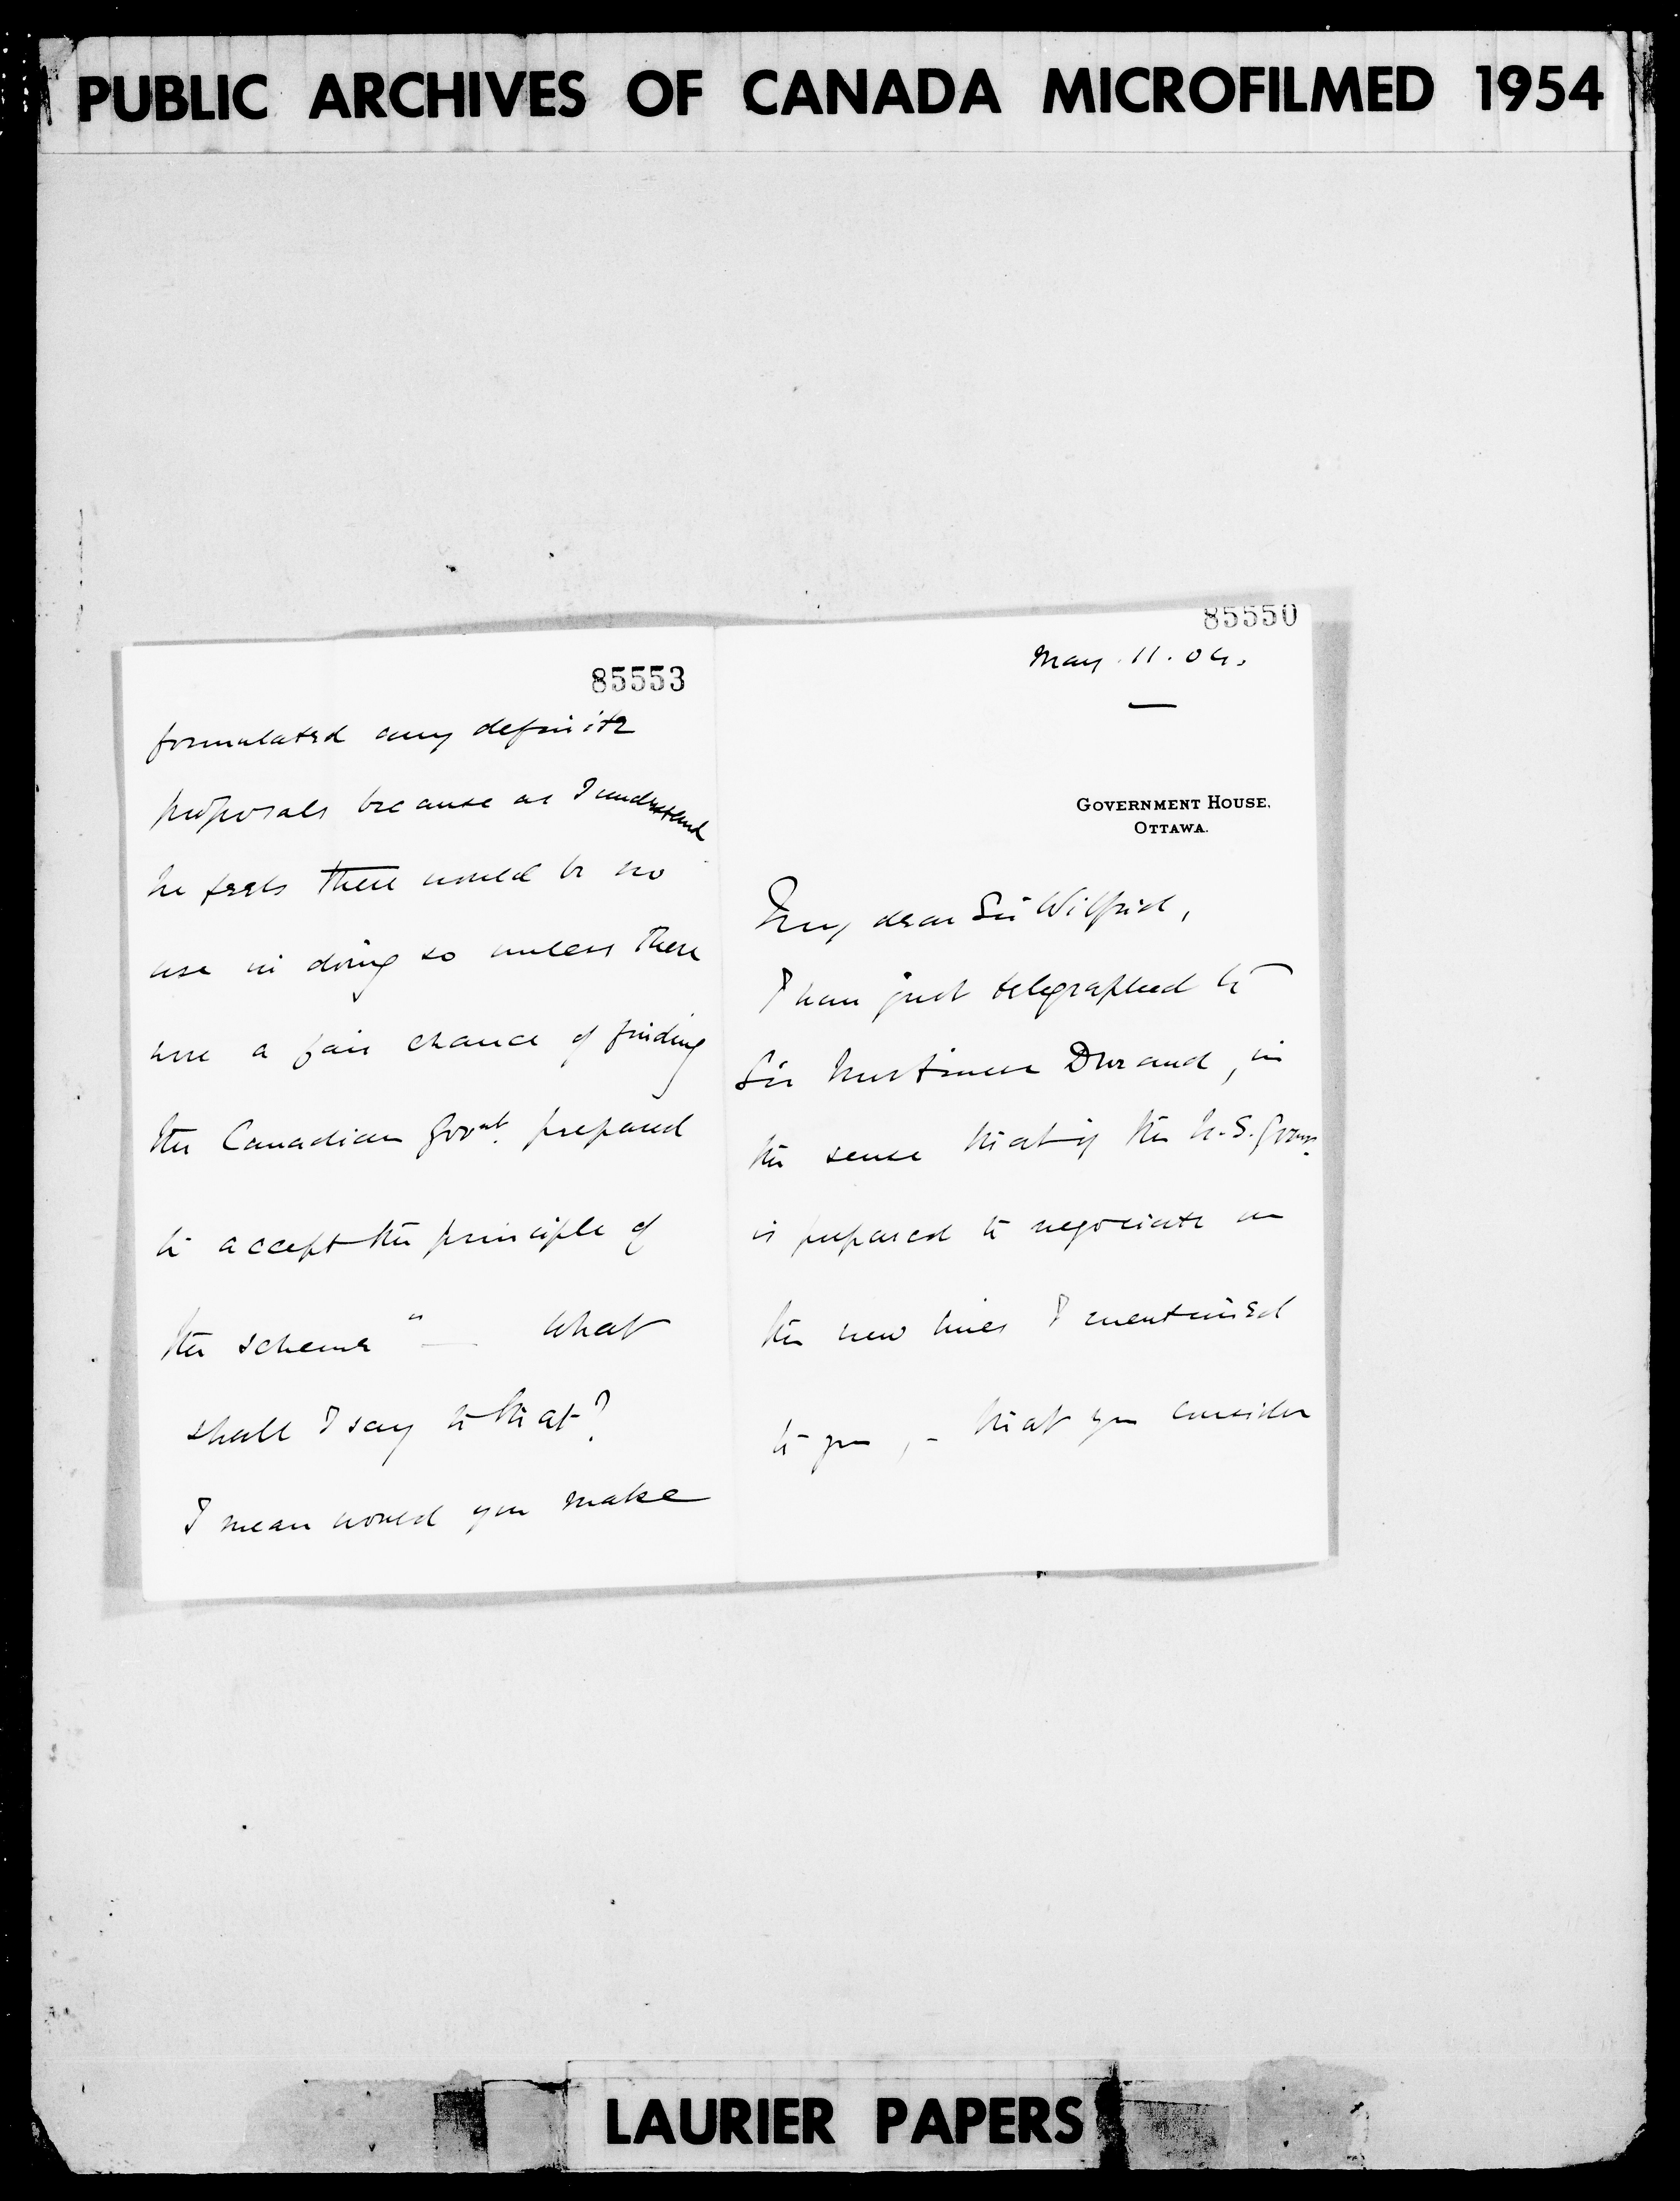 PUBLIC ARCHIVES OF CANADA MICROFILMED 1954
85553
formulated any definite
proposals because as I understand
he feels there would be no
use in doing so unless there
were a fair chance of finding
the Canadian Govnt. prepared
to accept the principle of
the scheme" — What
shall I say to that?
I mean would you make
85550
May. 11. 04.
GOVERNMENT HOUSE,
OTTAWA.
My dear Sir Wilfrid,
I have just telegraphed to
Sir Mortimer Durand, in
the sense that if the U.S. Govnt.
is prepared to negotiate on
the new lines I mentioned
to you, - that you consider
LAURIER PAPERS